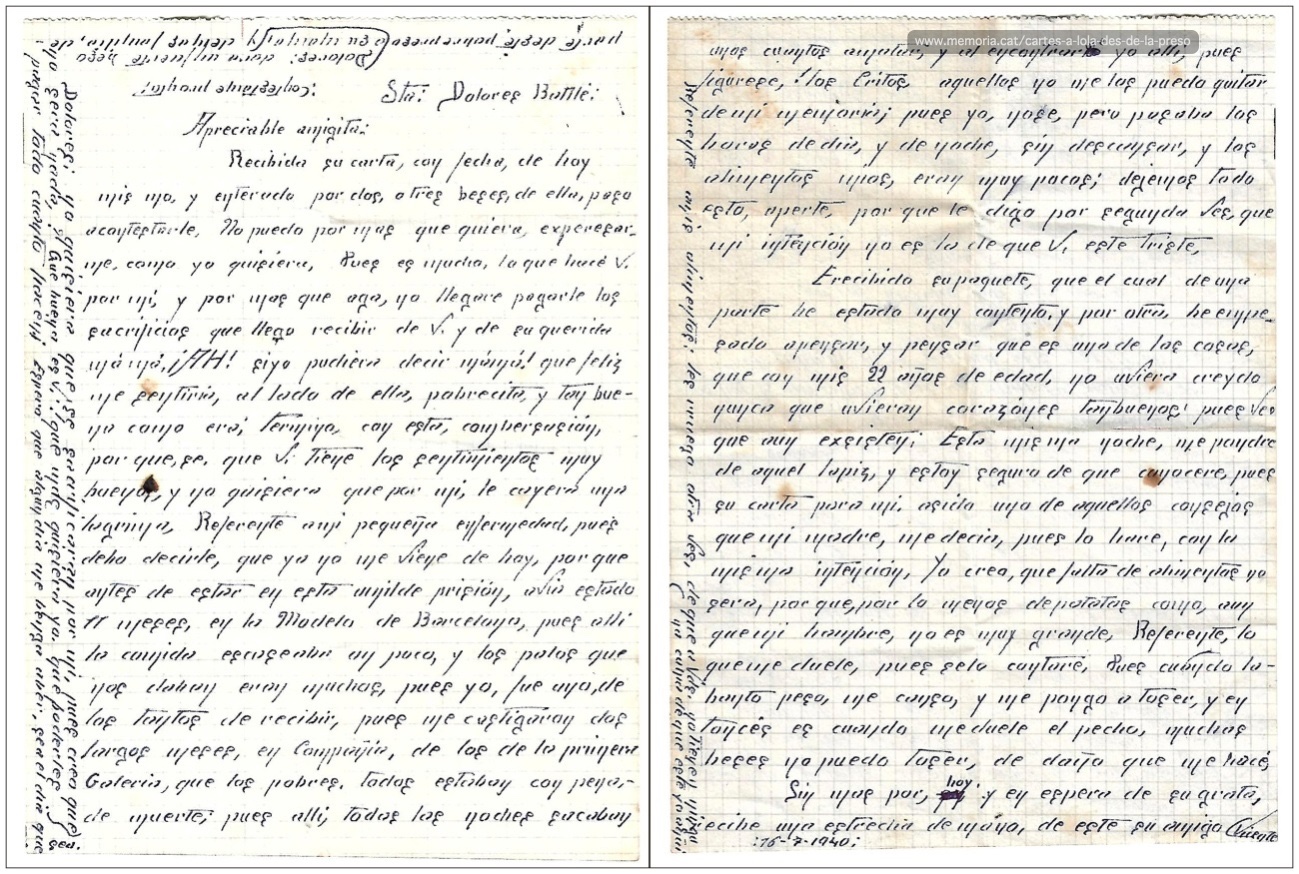 www.memoria.cat/cartes-a-lola-des-de-la-preso
Sta: Dolores Batllé:
Apreciable amigita:
Recibida su carta, con fecha, de hoy
mis mo, y enterado por dos, o tres beses, de ella, paso
acontestarle, No puedo por mas que quiera, experesar-
me, como yo quisiera, Pues es mucho, lo que hacé V.
por mi, y por mas que aga, no llegare pagarle los
sacrificios que llego recibir de V. y de su querida
mámá, ¡AH! siyo pudiéra decir mámá! que feliz
me sentiria, al lado de ella, pobrecita, y tan bue-
na como era, Termino, con esta, combersasión,
por que, se, que V. tiene los sentimientos muy
buenos, y no quisiera que por mi, le cayera una
lagrima, Referente ami pequeña enfermedad, pues
debo decirle, que ya no me viene de hoy, por que
antes de estar en esta umilde prisión, avia estado
11 meses, en la Modelo de Barcelona, pues alli
la comida escaseaba un poco, y los palos que
nos daban eran muchos, pues yo, fue uno, de
los tantos de recibir, pues me castigaron dos
largos meses, en Compañia, de los de la primera
Galeria, que los pobres, todos estaban con pena,-
de muerte, pues alli, todas las noches sacaban
Dolores; no quisiera que se sacrificaran por mi, pues creo que
no sere nadie, Que buena es V.; que mas quisiera yo, que poderles
pagar todo cuanto hacen Espero que algun dia me benga saber, sea el dia que
sea.
mos cuantos amatar, y al encontrarme yo alli, pues
figurese, ¡los Gritos aquellos no me los puedo quitar
de mi menjoria; pues yo, nose, pero pasaba las
horas de dia, y de noche, sin descansar, y los
alimentos mios, eran muy pocos; dejemos todo
esto, aperte, por que le digo por segunda Ves, que
mi intención no es la de que V. este triste,
Erecibido supaquete, que el cual de una
parte he estado muy contento, y por otra, he empe-
sado apensar, y pensar que es una de las cosas,
que con mis 22 años de edad, no uviera creydo
nunca que uvieran corazónes tanbuenos! pues Veo
que aun exsisten: Esta misma noche, me pondre
de aquel lapiz, y estoy segura de que conocere, pues
su carta para mi, asido uno de aquellos consejos
que mi madre, me decia, pues lo hare, con la
misma intención, Yo creo, que falta de alimentos no
sera, por que, por lo menos depatatas como, aun
quemi hombre, no es muy grande, Referente, lo
queme duele, pues selo contare, Pues cuándo le-
banto peso, me canso, y me pongo a toser, y en
tonces es cuando me duele el pecho, muchas
beses no puedo toser, de daño que me hacé,
Sin mas por, hoy y en espera de su grata,
recibe una estrecha de máno, de este su amigo Vicente
:16-7-1940: